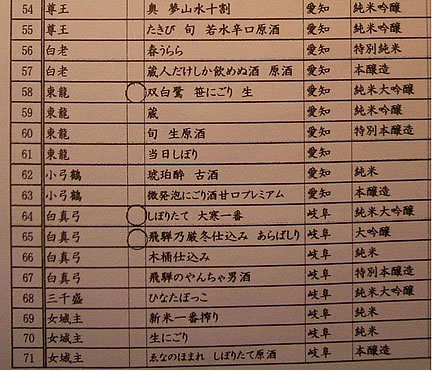 54 尊王 奥 夢山水十割 愛知 純米吟醸
55 尊王 たきび 旬 若水辛口原酒 愛知 純米吟醸
56 白老 春うらら 愛知 特別純米
57 白老 蔵人だけしか飲めぬ酒 原酒 愛知 本醸造
58 東龍 双白鷺 笹にごり 生 愛知 純米大吟醸
59 東龍 蔵 愛知 純米吟醸
60 東龍 旬 生原酒 愛知 特別本醸造
61 東龍 当日しぼり 愛知
62 小弓鶴 琥珀酔 古酒 愛知 純米
63 小弓鶴 微発泡にごり酒甘口プレミアム 愛知 本醸造
64 白真弓 しぼりたて 大寒一番 岐阜 純米大吟醸
65 白真弓 飛騨乃厳冬仕込み あらばしり 岐阜 大吟醸
66 白真弓 木桶仕込み 岐阜 純米
67 白真弓 飛騨のやんちゃ男酒 岐阜 特別本醸造
68 三千盛 ひなたぼっこ 岐阜 純米大吟醸
69 女城主 新米一番搾り 岐阜 純米
70 女城主 生にごり 岐阜 純米
71 女城主 ゑなのほまれ しぼりたて原酒 岐阜 本醸造